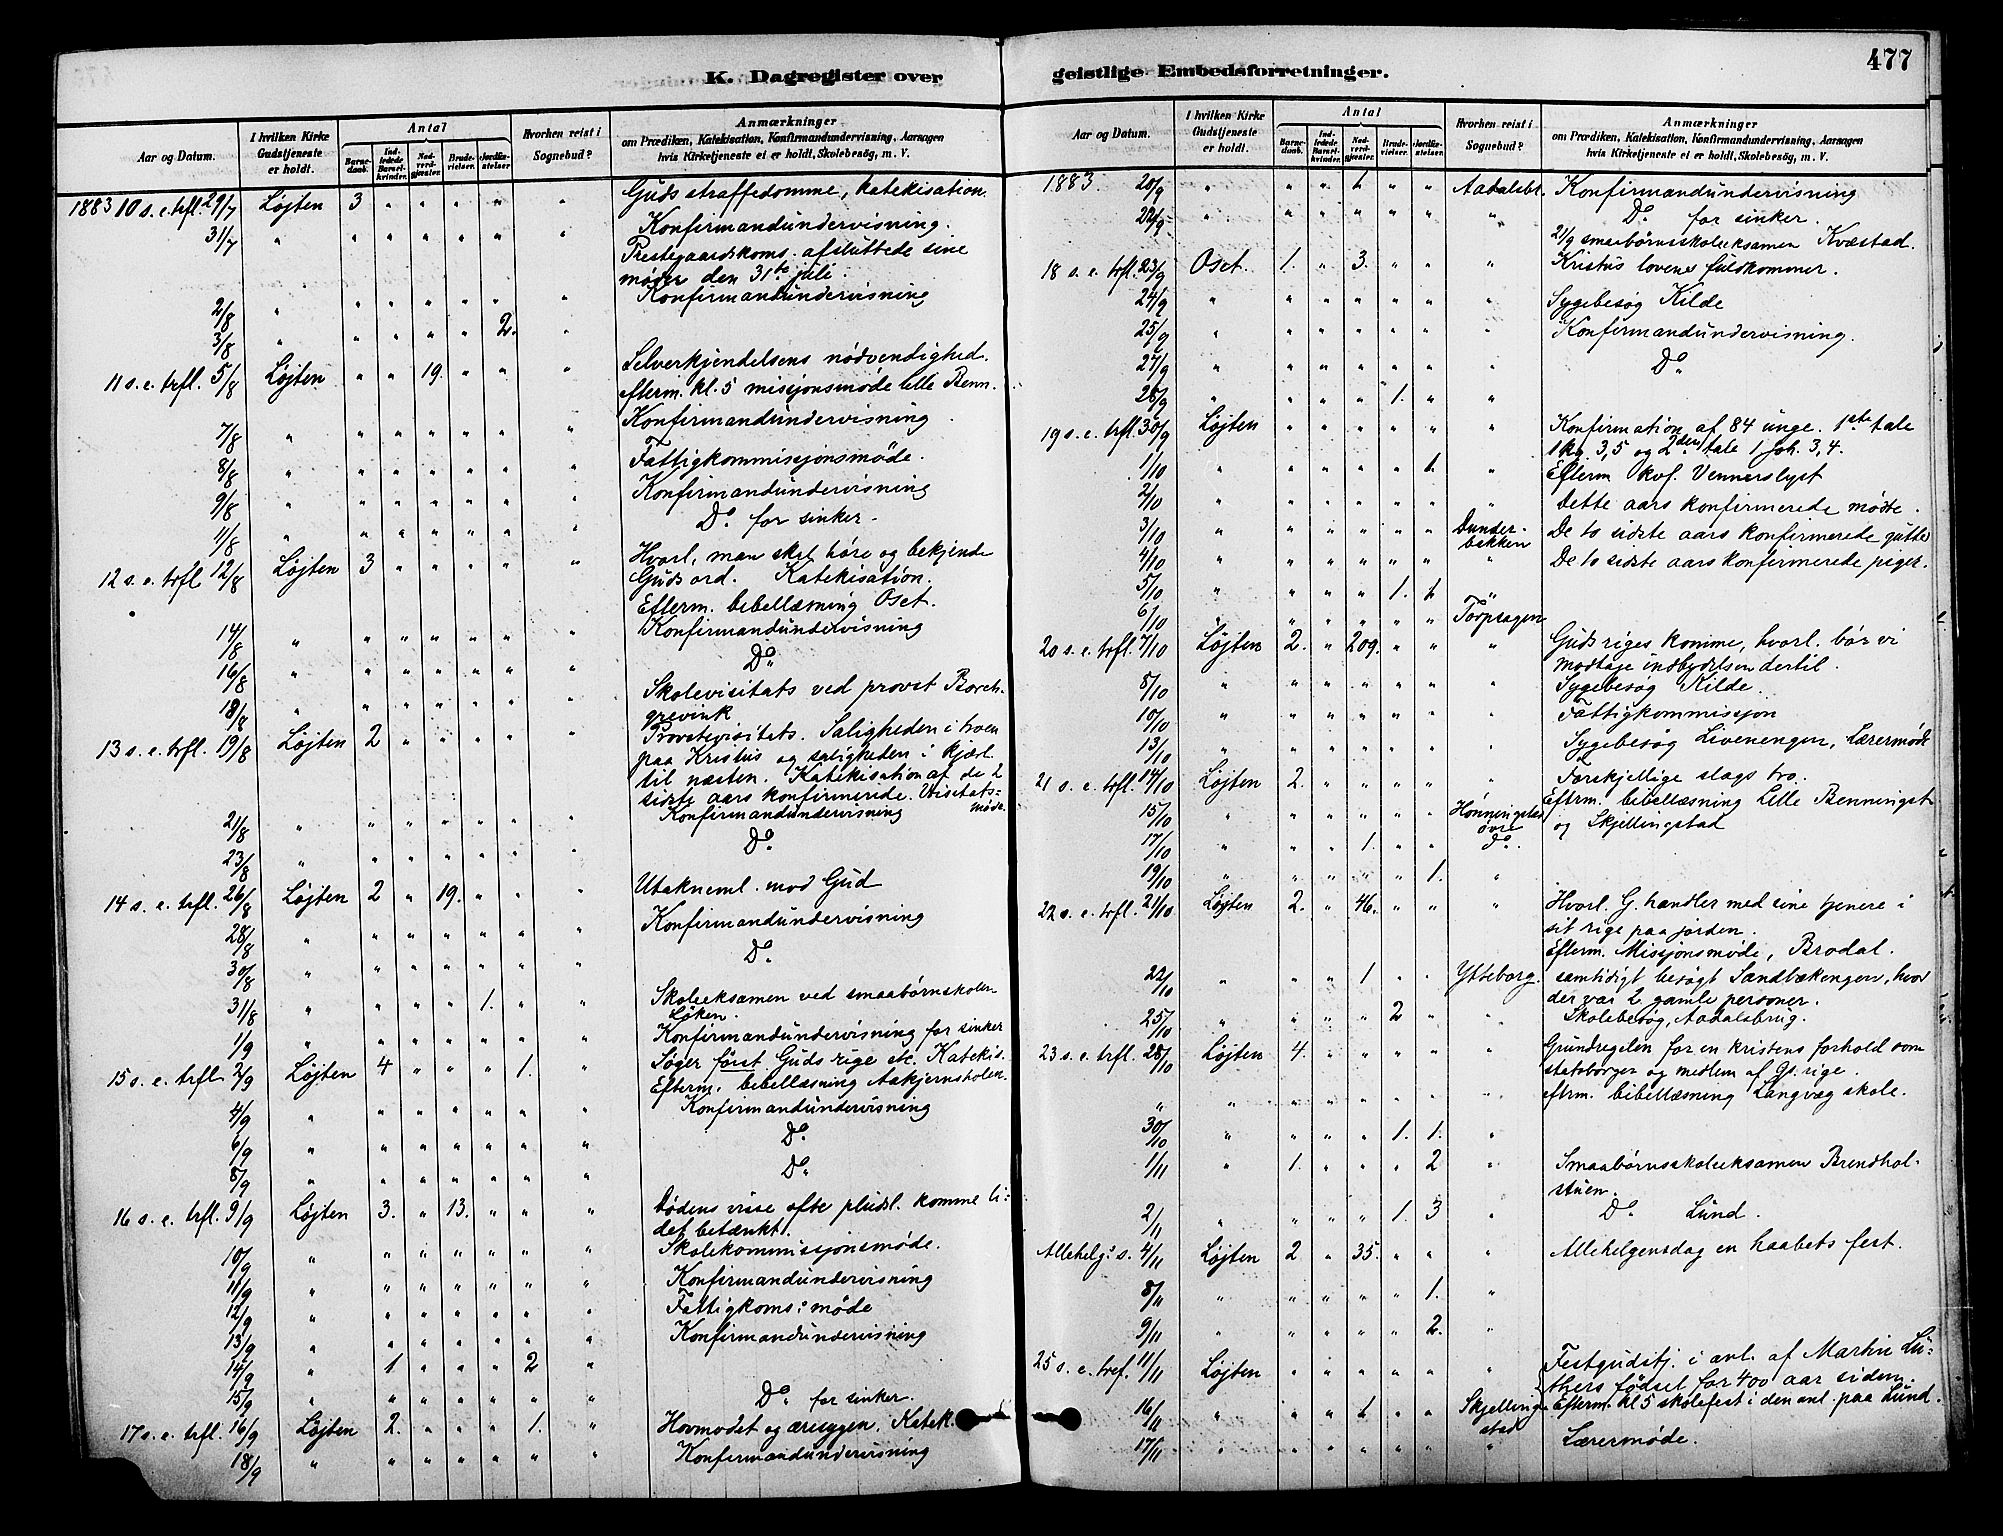 477
K. Dagregister over geistlige Embedsforretninger.
Aar og Datum.
I hvilken Kirke Gudstjeneste er holdt.
Antal
Barnedaab.
Indledede Barselkvinder.
Nadverdgjester.
Brudevielser.
Jordfæstelser
Hvorhen reist i Sognebud?
Anmærkninger
om Prædiken, Katekisation, Konfirmandundervisning, Aarsagen
hvis Kirketjeneste ei er holdt, Skolebesøg, m. V.
1883 10 s. e. trfl. 29/7 Løjten 3 " " " " " Guds straffedomme, katekisation.
31/7 " " " " " " " Konfirmandundervisning.
Prestegaardskoms. afsluttede sine
møder den 31te juli.
2/8 " " " " " " " Konfirmandundervisning
3/8 " " " " " 2. "
11 s. e. trfl. 5/8 Løjten " " 19. " " " Selverkjendelsens nødvendighed.
efterm. kl. 5 missjonsmøde lille Benn.
7/8 " " " " " " " Konfirmandundervisning.
8/8 " " " " " " " Fattigkommissjonsmøde.
9/8 " " " " " " " Konfirmandundervisning
11/8 " " " " " " " Do for sinker.
12 s. e. trfl 12/8 Løjten 3 " " " " " Hvorl. man skal høre og bekjende
Guds ord. Katekisation.
Efterm. bibellæsning Oset.
14/8 " " " " " " " Konfirmandundervisning
16/8 " " " " " " " Do
18/8 " " " " " " " Skolevisitats ved provst Borch-
grevink
13 s. e. trfl. 19/8 Løjten 2 " " " " " Provstevisitats. Saligheden i troen
paa Kristus og saligheden i kjærl.
til næsten. Katekisation af de 2
sidste aars konfirmerede. Visitats-
møde.
21/8 " " " " " " " Konfirmandundervisning
23/8 " " " " " " " Do
14 s. e. trfl. 26/8 Løjten 2 " 19. " " " Utakneml. mod Gud
28/8 " " " " " " " Konfirmandundervisning
30/8 " " " " " " " Do
31/8 " " " " " 1. " " Skoleeksamen ved smaabørnskolen
Løken.
1/9 " " " " " " " Konfirmandundervisning for sinker
15 s. e. trfl 2/9 Løjten 4 " " " 1. " Søger først Guds rige etc. Katekis.
Efterm. bibellæsning Aakjernsholen.
4/9 " " " " " " " Konfirmandundervisning
6/9 " " " " " " " Do
8/9 " " " " " " " Do
16 s. e. trfl. 9/9 Løjten 3. " 13. " " " Dødens visse ofte pludsl. komme li-
det betænkt.
10/9 " " " " " " " Skolekommissjonsmøde.
11/9 " " " " " " " Konfirmandundervisning
12/9 " " " " " " " Fattigkoms: møde
13/9 " " " " " " " Konfirmandundervisning
14/9 " 1. " " " 2 "
15/9 " " " " " " " Do for sinker.
17 s. e. trfl. 16/9 Løjten 2. " " " 1. " Hovmodet og æresygen. Katek.
18/9 " " " " " " " Konfirmandundervisning
Aar og Datum.
I hvilken Kirke Gudstjeneste er holdt.
Antal
Barnedaab.
Indledede Barselkvinder.
Nadverdgjester.
Brudevielser.
Jordfæstelser
Hvorhen reist i Sognebud?
Anmærkninger
om Prædiken, Katekisation, Konfirmandundervisning, Aarsagen
hvis Kirketjeneste ei er holdt, Skolebesøg, m. V.
1883. 20/9 " " " 1 " " Aadalsbr. Konfirmandundervisning
22/9 " " " " " " " Do for sinker.
21/9 smaabørnsskoleeksamen Kvæstad.
18 s. e. trfl. 23/9 Oset. 1. " 3. " " " Kristus lovens fuldkommer.
24/9 " " " " " " " Sygebesøg Kilde
25/9 " " " " " " " Konfirmandundervisning.
27/9 " " " " " " " Do
28/9 " " " " 1. " "
19 s. e. trfl. 30/9 Løjten " " " " " " Konfirmation af 84 unge. 1ste tale
1 kg. 3,5 og 2den tale 1 Joh. 3,4.
1/10 " " " " " 1 " Efterm kvf. Vennerslyst
2/10 " " " " " " " Dette aars konfirmerede mødte.
3/10 " " " " " " Dunder-
bekken De to sidste aars konfirmerede gutter
4/10 " " " " " " " De to sidste aars konfirmerede piger.
5/10 " " " " 1. 1 "
6/10 " " " " " " Torpsagen
20 s. e. trfl. 7/10 Løjten 2. " 209. " " " Guds riges komme, hvorl. bør vi
modtage indbydelsen dertil.
8/10 " " " " " " " Sygebesøg Kilde.
10/10 " " " " " " " Fattigkommissjon
13/10 " " " " " " " Sygebesøg Livenengen, Lærermøde
21 s. e. trfl. 14/10 Løjten 2. " " " " " Forskjellige slags tro.
Eftrm. bibellæsning Lille Benningst.
15/10 " " " " " " Hønningstad
øvre og Skjellingstad
17/10 " " " 1. " " Do.
19/10 " " " " " 1. "
22 s. e. trfl. 21/10 Løjten 2. " 46. " " " Hvorl. G. handler med sine tjenere i
sit rige paa jorden.
Efterm. Missjonsmøde, Brodal.
22/10 " " " 1 " " Ytteborg. samtidigt besøgt Sandbækengen, hvor
der var 2 gamle personer.
25/10 " " " " 2 " " Skolebesøg, Aadalsbrug.
23 s. e. trfl. 28/10 Løjten 4. " " " " " Grundregelen for en kristens forhold som
statsborger og medlem af Gs. rige.
" " " " " " " " eftrm. bibellæsning Langvæg skole.
30/10 " " " " 1. 1. "
1/11 " 1. " " " 2 " Smaabørnsskoleeksamen Brendhol-
stuen.
2/11 " " " " 1. 3 " Do Lund.
Allehelg: s. 4/11 Løjten 2 " 35. " " " Allehelgensdag en haabets fest.
8/11 " " " " " 1. "
9/11 " " " " " 2. "
25 s. e. tref. 11/11 Løjten " " " " " " Festgudstj. i anl. af Martin Lu-
thers fødsel for 400 aar siden.
Efterm. kl 5 skolefest i den anl. paa Lund.
16/11 " " " 1 " " Skjelling-
stad
17/11 " " " " " " " Lærermøde.